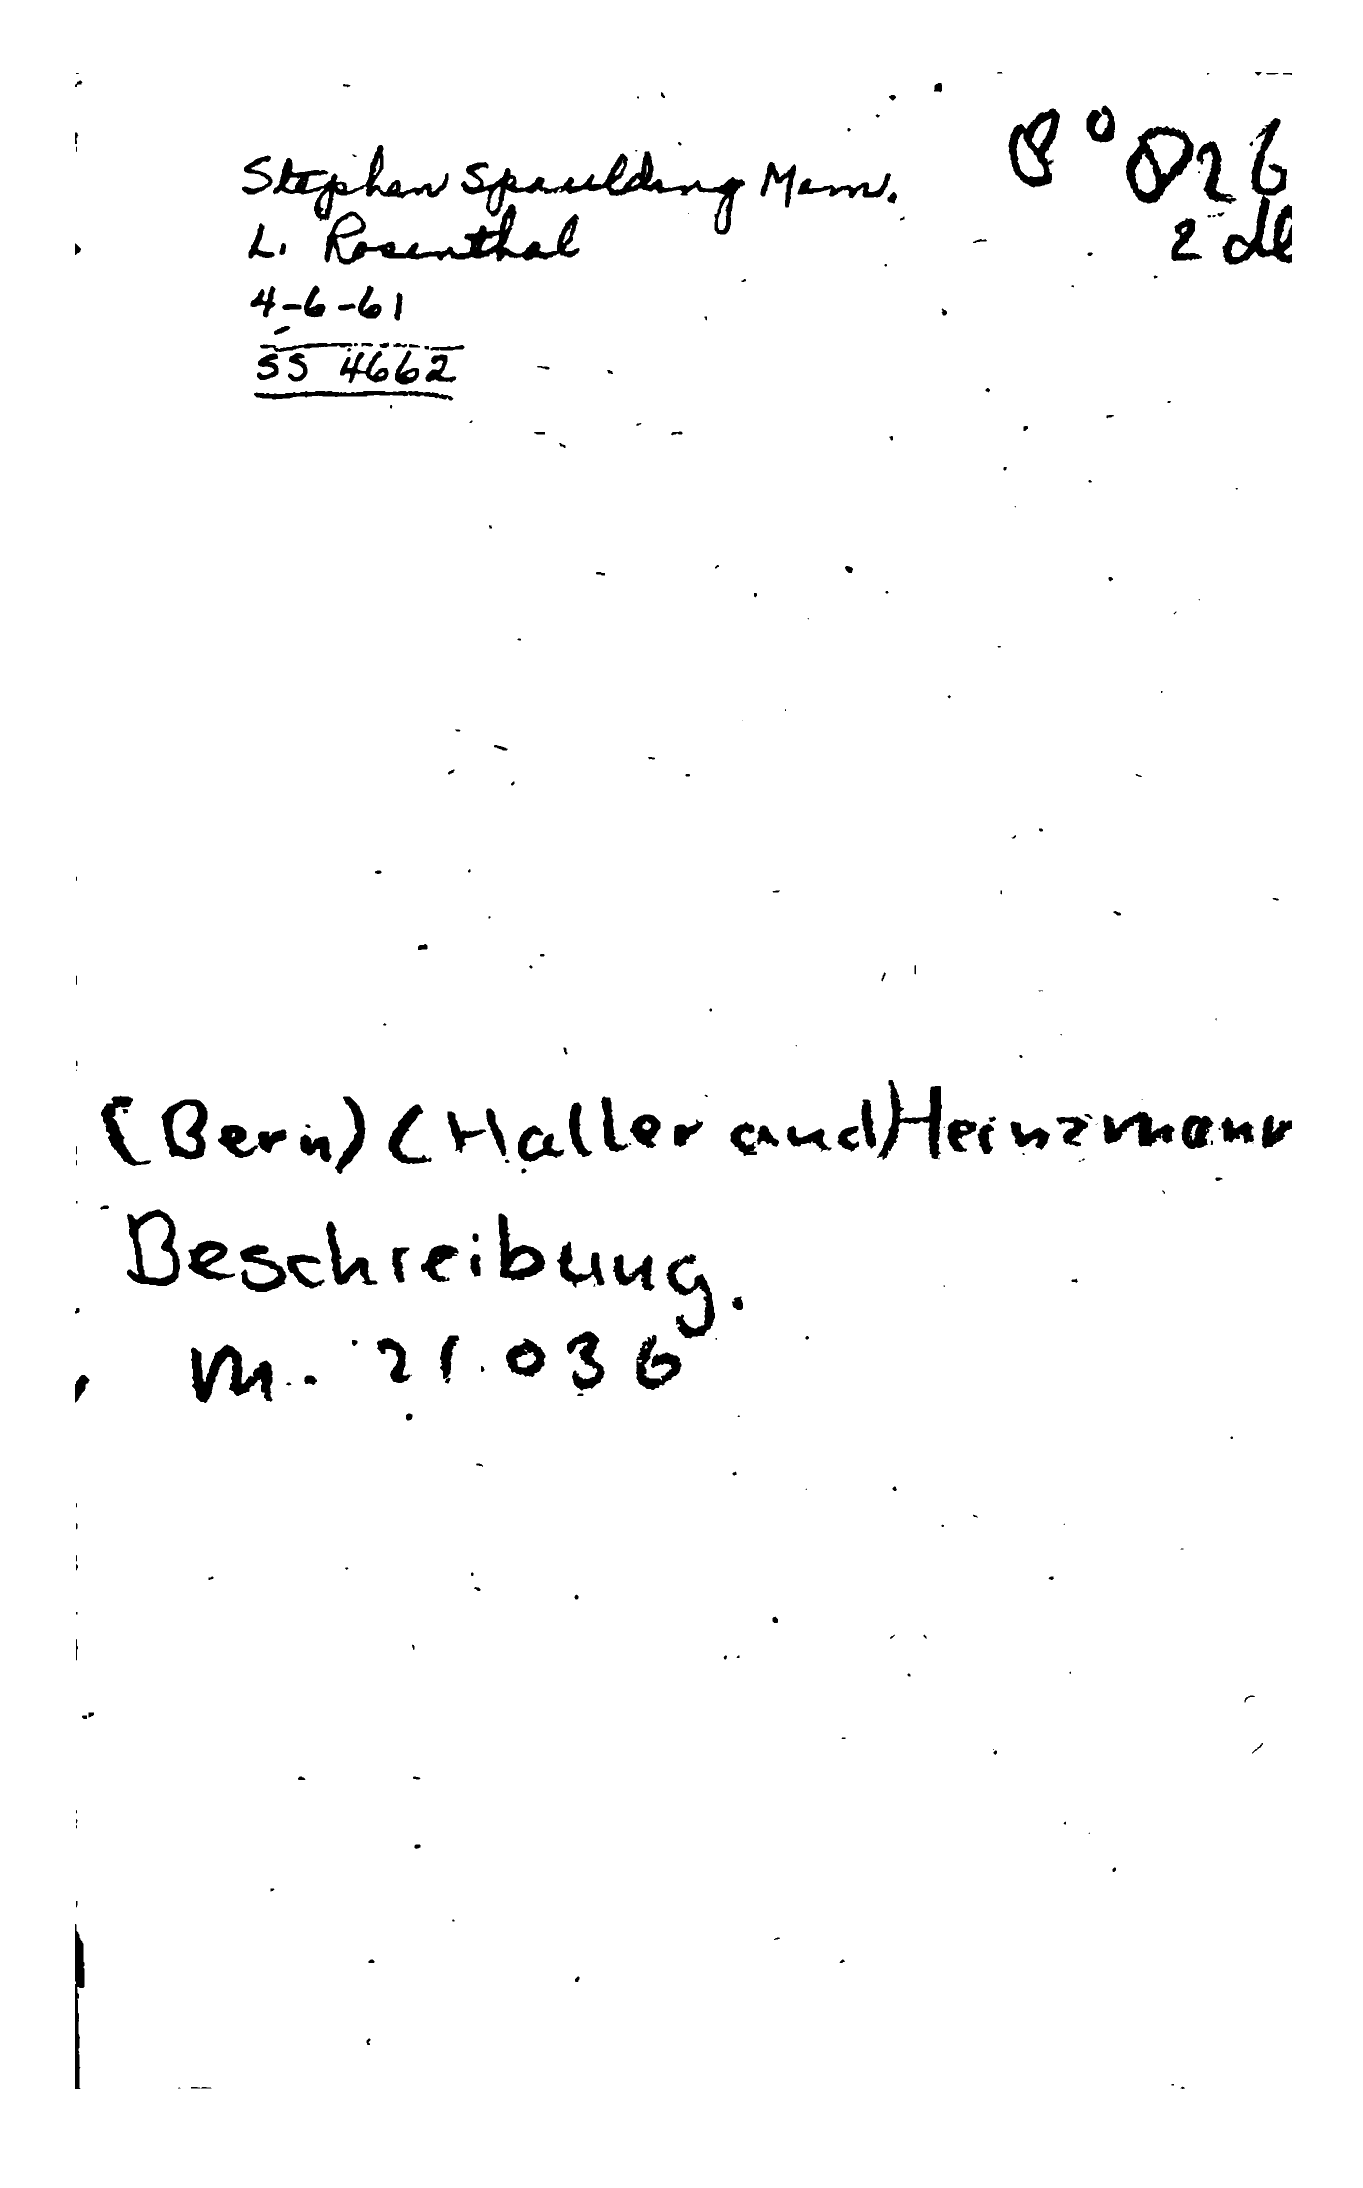 Stephen Spaulding Mem.
L. Rosenthal
4-6-61
SS 4662
8° D26
2 de
(Bern) (Haller and) Heinzmann
Beschreibung.
M. 21.036